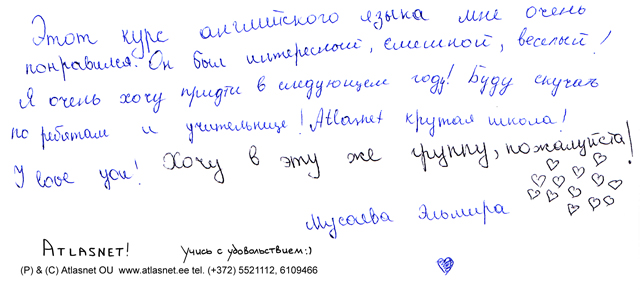 Этот курс английского языка мне очень
понравился. Он был интересный, смешной, веселый!
Я очень хочу придти в следующем году! Буду скучать
по ребятам и учительнице! Atlasnet крутая школа!
I love you! Хочу в эту же группу, пожалуйста!
Мусаева Эльмира
ATLASNET! Учись с удовольствием:)
(P) & (C) Atlasnet OU www.atlasnet.ee tel. (+372) 5521112, 6109466